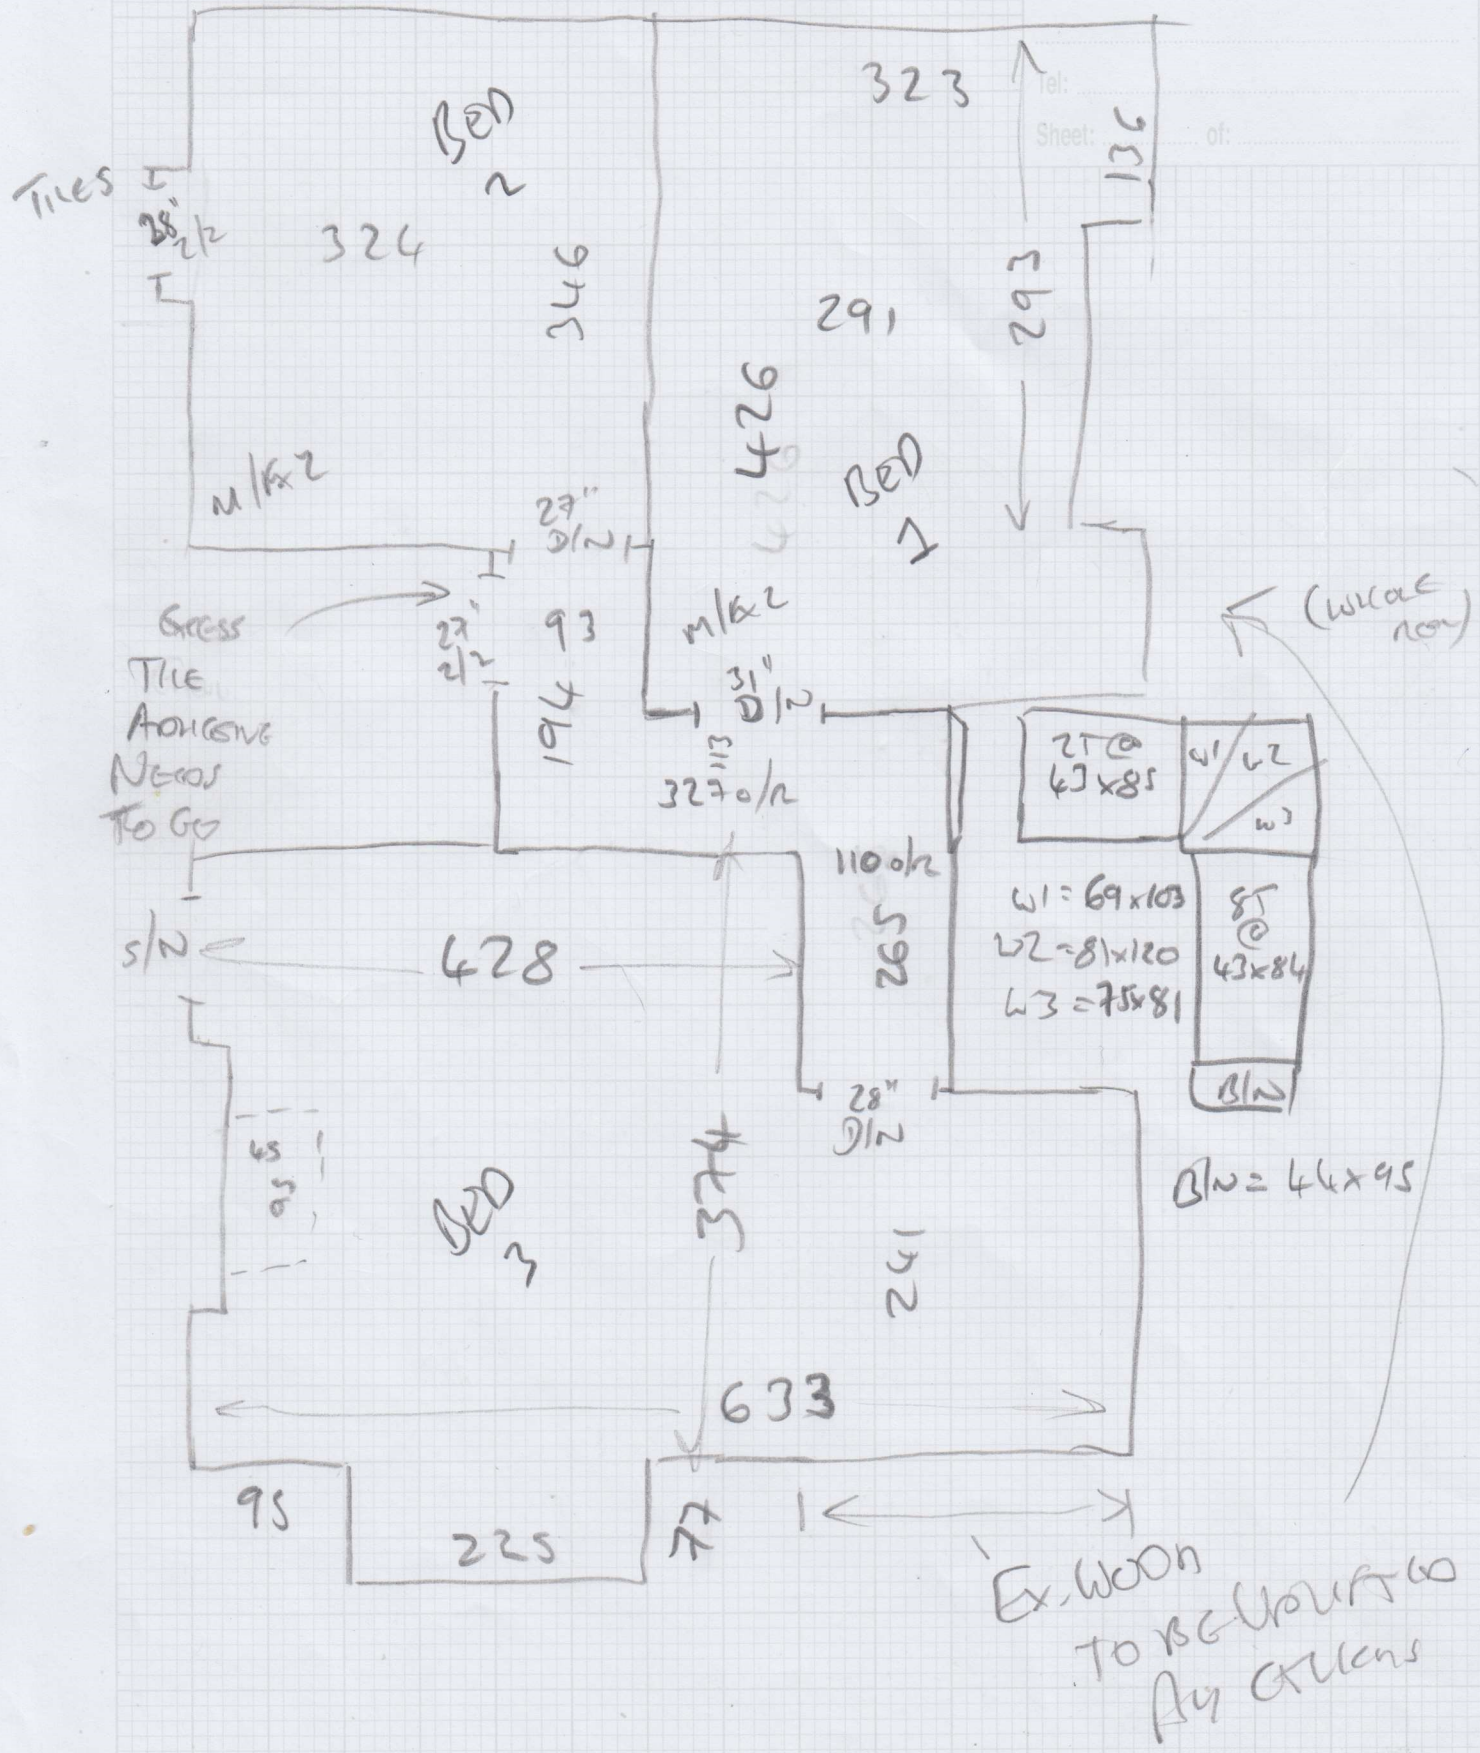 323
Tel:
Sheet: of:
136
BED
2
TILES
38"
2/2
324
346
293
291
426
BED
1
M/Ex2
27"
D/N
EXCESS
TILE
ADHESIVE
NEEDS
TO GO
27"
2/2
93
194
M/Ex2
31"
D/N
113
327 o/R
(WHOLE
2T@
43x85
W1
W2
W3
110 o/R
265
W1=69x103
W2=81x120
W3=75x81
8T
@
43x84
S/N
428
28"
D/N
B/N
B/N=44x95
45
95
BED
3
374
241
633
95
225
77
Ex. WOOD
TO BE UPLIFTED